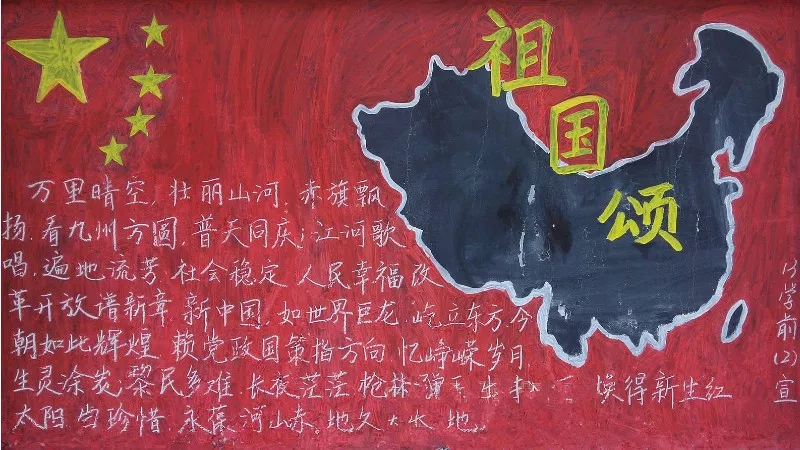 祖国颂
万里晴空，壮丽山河，赤旗飘
扬，看九州方圆，普天同庆；江河歌
唱，遍地流芳，社会稳定 人民幸福 改
革开放谱新章 新中国，如世界巨龙 屹立东方 今
朝如此辉煌 赖党政国策指方向 忆峥嵘岁月
生灵涂炭 黎民多难 长夜茫茫 枪林弹 生 换得新生红
太阳 珍惜，永葆河山赤。地久 地
学前(2)宣